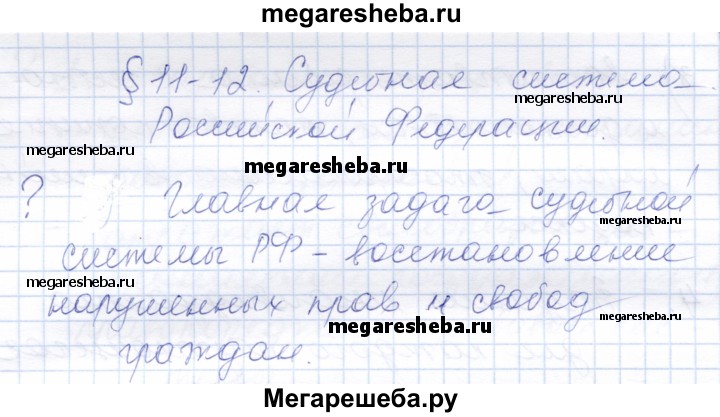 megaresheba.ru
§ 11-12. Судебная система
megaresheba.ru
Российской Федерации.
megaresheba.ru
megaresheba.ru
? Главная задача судебной
megaresheba.ru
системы РФ - восстановление
megaresheba.ru
нарушенных прав и свобод
megaresheba.ru
megaresheba.ru
граждан.
Мегарешеба.ру